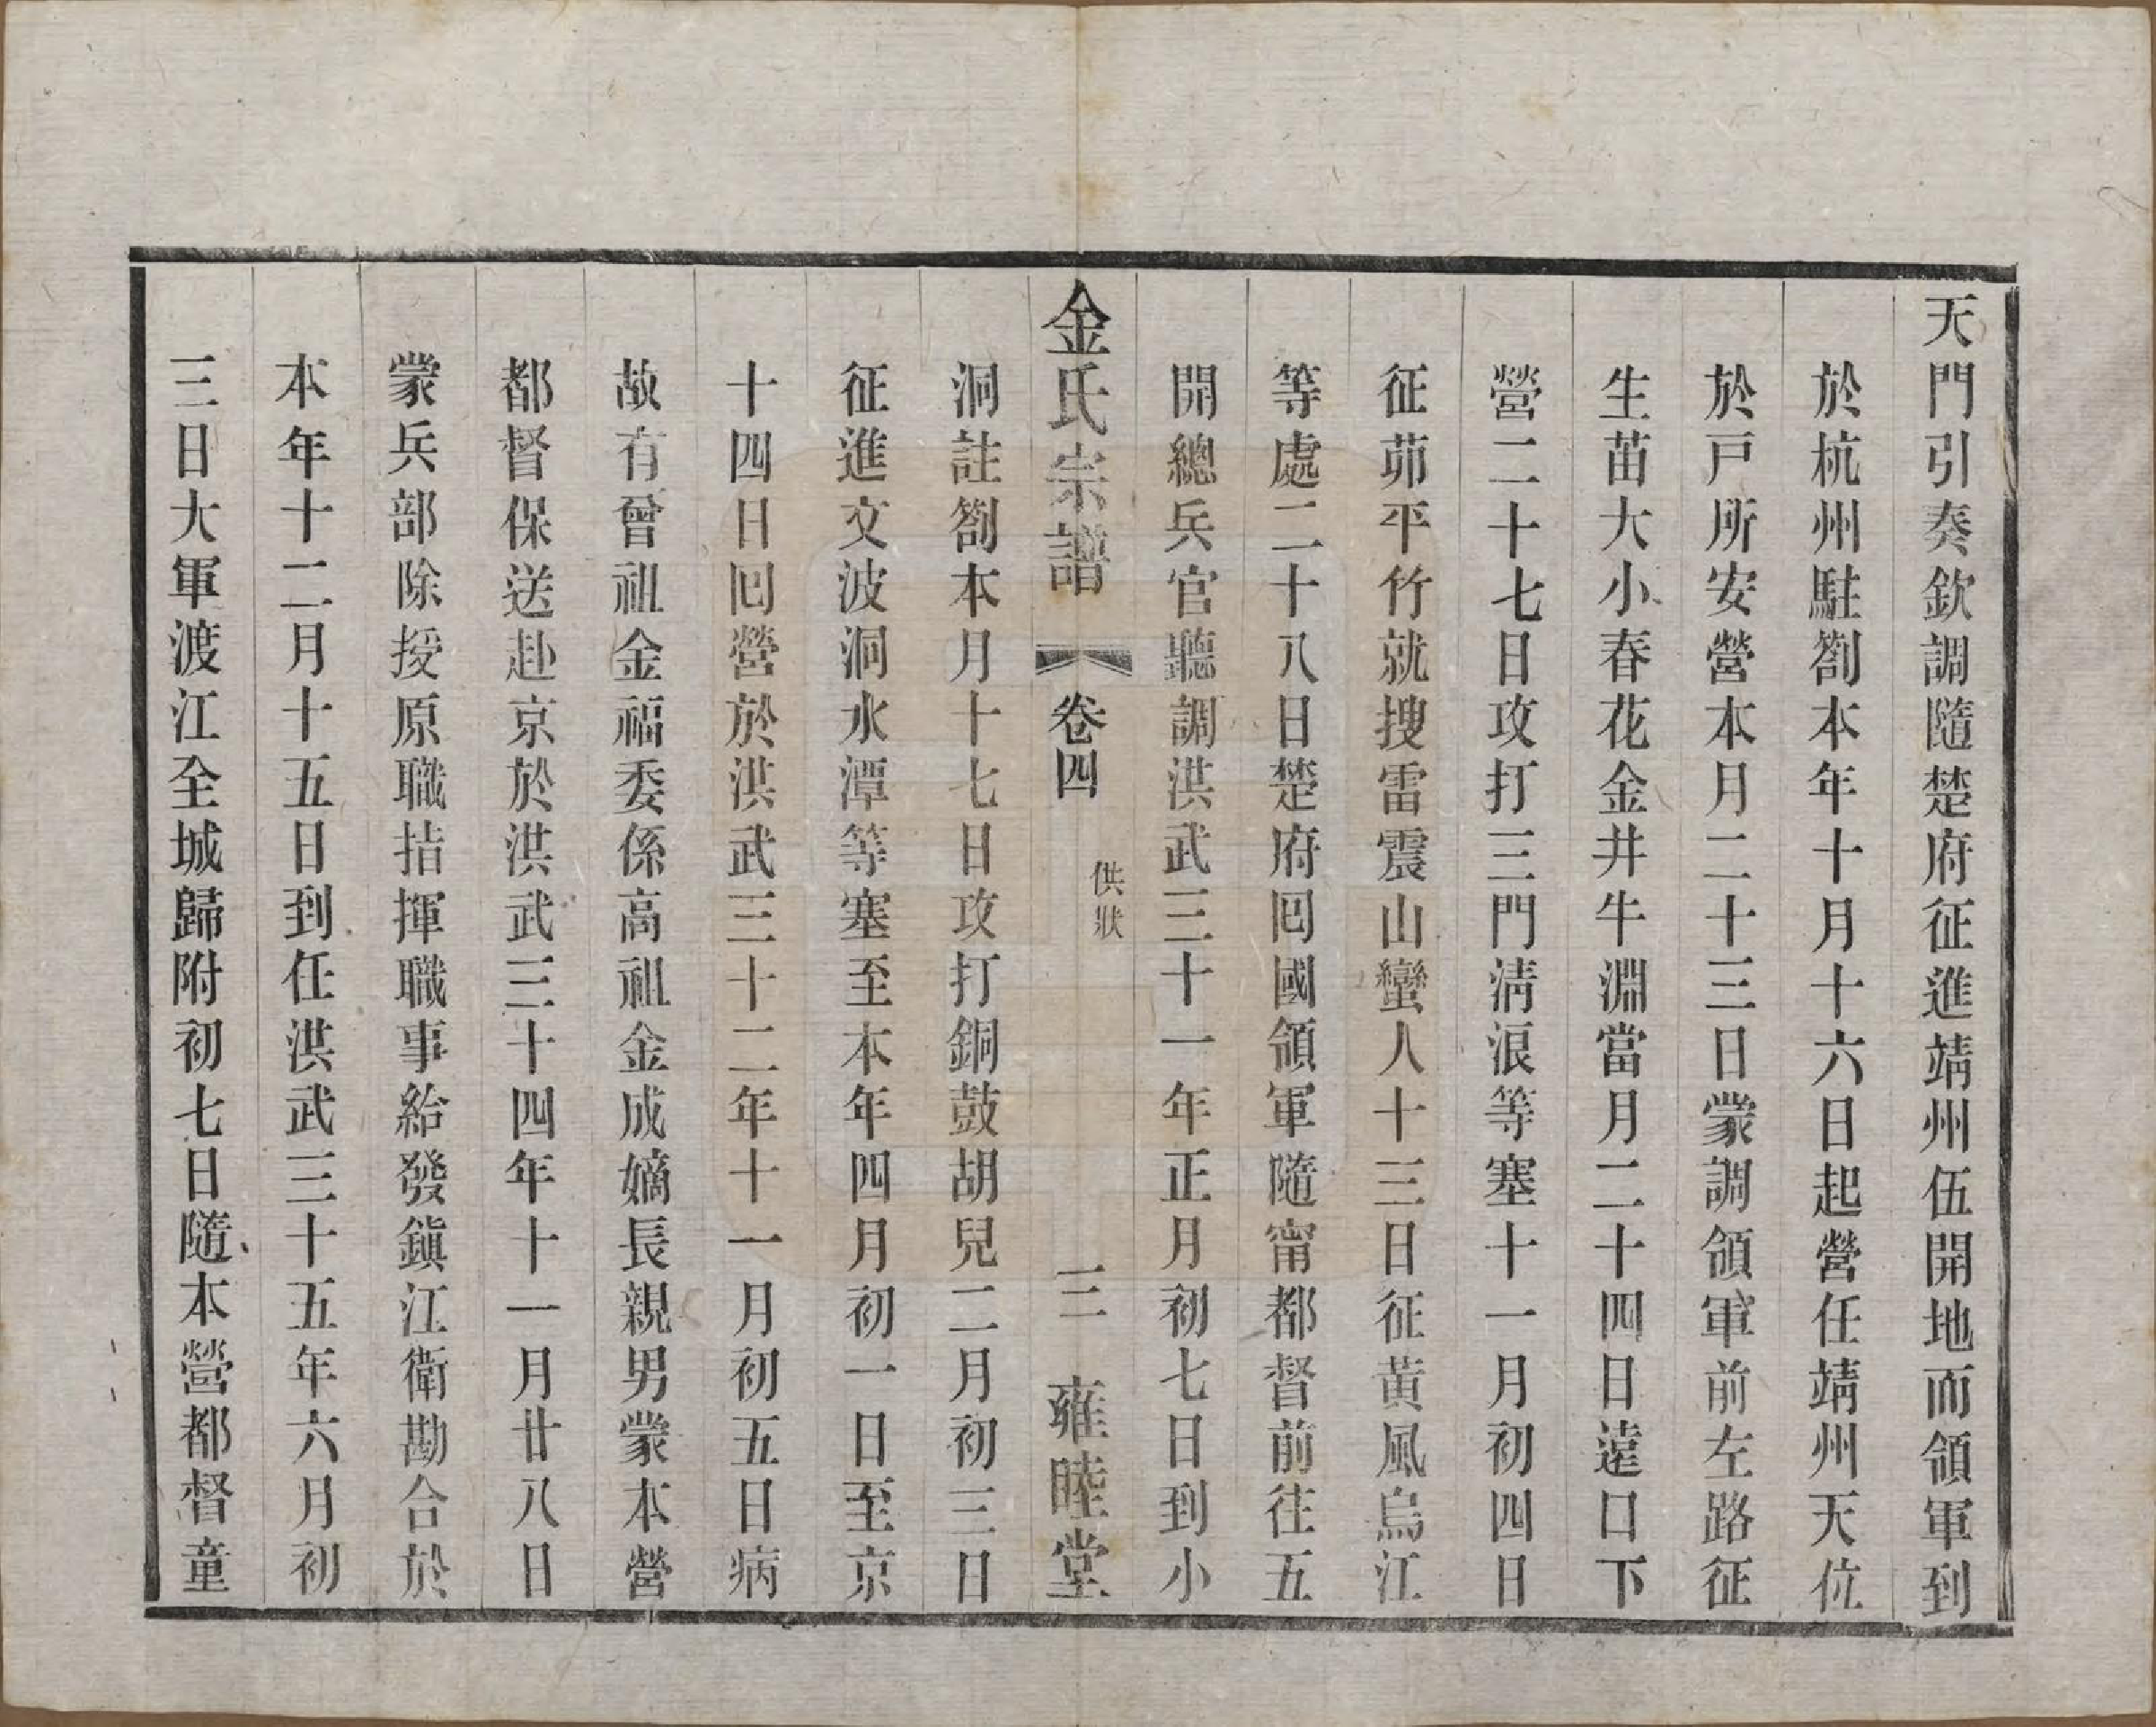 天門引奏欽調隨楚府征進靖州伍開地而領軍到
於杭州駐劄本年十月十六日起營任靖州天位
於戸所安營本月二十三日蒙調領軍前左路征
生苗大小春花金井牛淵當月二十四日遠口下
營二十七日攻打三門清浪等塞十一月初四日
征茆平竹就搜雷震山蠻人十三日征黃風烏江
等處二十八日楚府囘國領軍隨甯都督前往五
開總兵官聽調洪武三十一年正月初七日到小
金氏宗譜 卷四 供狀 三 雍睦堂
洞註劄本月十七日攻打銅鼓胡兒二月初三日
征進文波洞水潭等塞至本年四月初一日至京
十四日囘營於洪武三十二年十一月初五日病
故有曾祖金福委係高祖金成嫡長親男蒙本營
都督保送赴京於洪武三十四年十一月廿八日
蒙兵部除授原職拮揮職事給發鎭江衛勘合於
本年十二月十五日到任洪武三十五年六月初
三日大軍渡江全城歸附初七日隨本營都督童